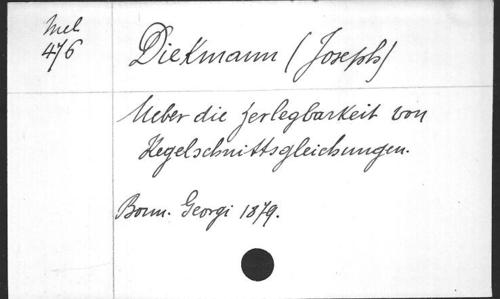 Mel
476
Diekmann (Joseph)
Ueber die Zerlegbarkeit von
Kegelschnittsgleichungen.
Bonn. Georgi 1879.